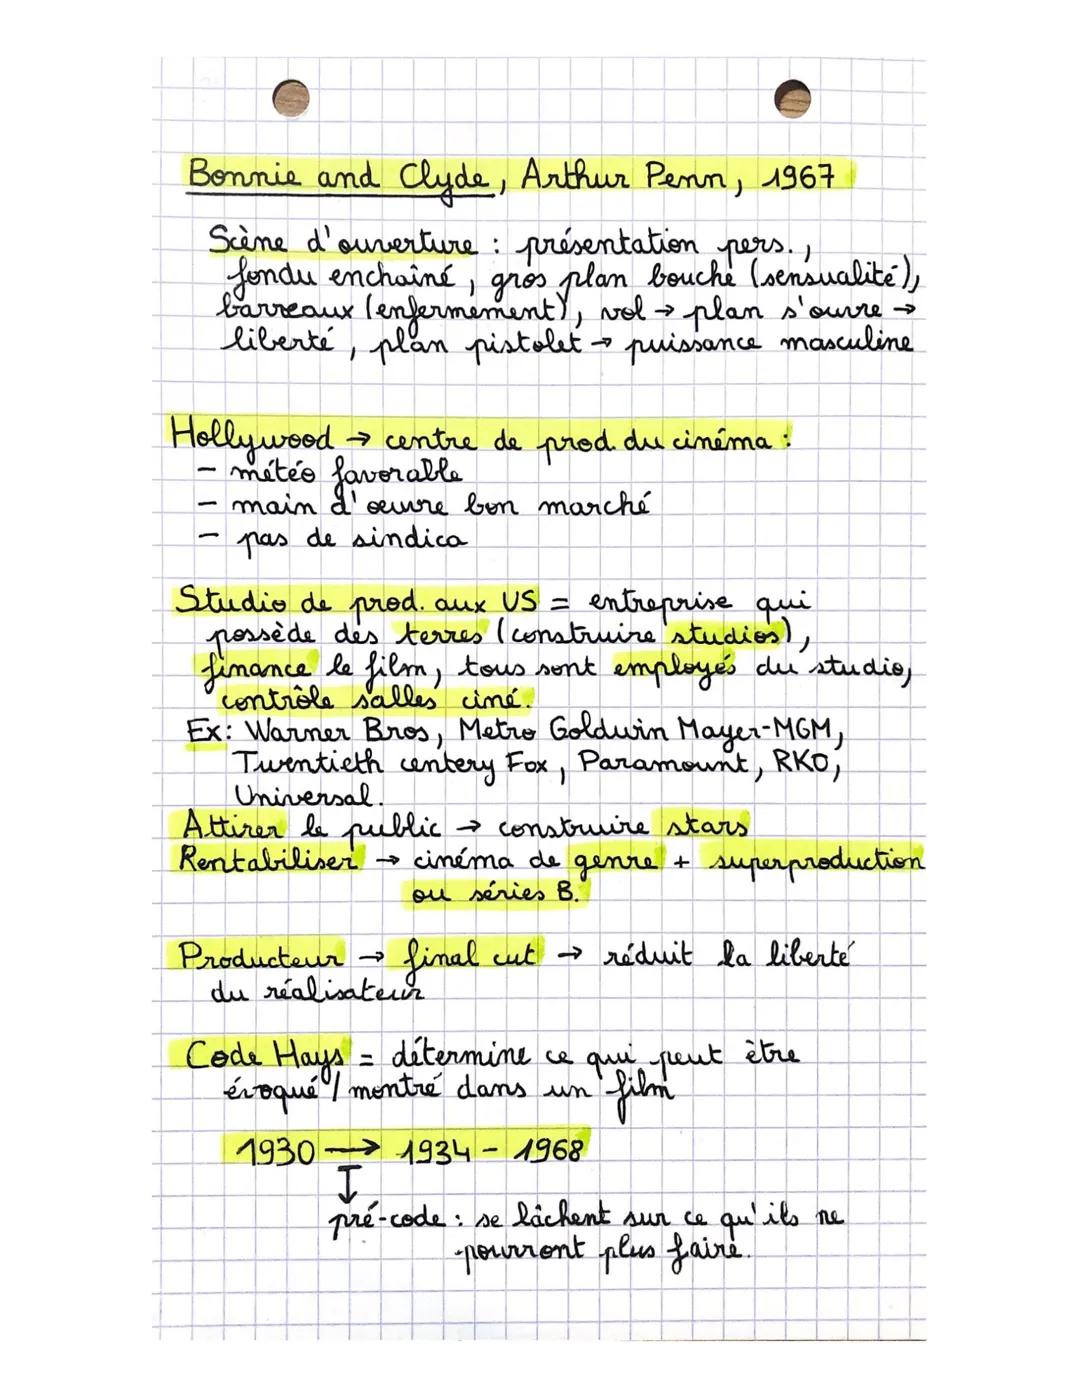 Bonnie and Clyde, Arthur Penn, 1967
Scène d'ouverture : présentation pers.,
fondu enchaîné, gros plan bouche (sensualité),
barreaux (enfermement), vol → plan s'ouvre →
liberté, plan pistolet → puissance masculine
Hollywood → centre de prod. du cinéma :
- météo favorable
- main d'œuvre bon marché
- pas de sindica
Studio de prod. aux US = entreprise qui
possède des terres (construire studios),
finance le film, tous sont employés du studio,
contrôle salles ciné.
Ex: Warner Bros, Metro Goldwin Mayer-MGM,
Twentieth centery Fox, Paramount, RKO,
Universal.
Attirer le public → construire stars
Rentabiliser → cinéma de genre + superproduction
ou séries B.
Producteur → final cut → réduit la liberté
du réalisateur
Code Hays = détermine ce qui peut être
évoqué / montré dans un film
1930 → 1934 - 1968
↓
pré-code : se lâchent sur ce qu'ils ne
pourront plus faire.